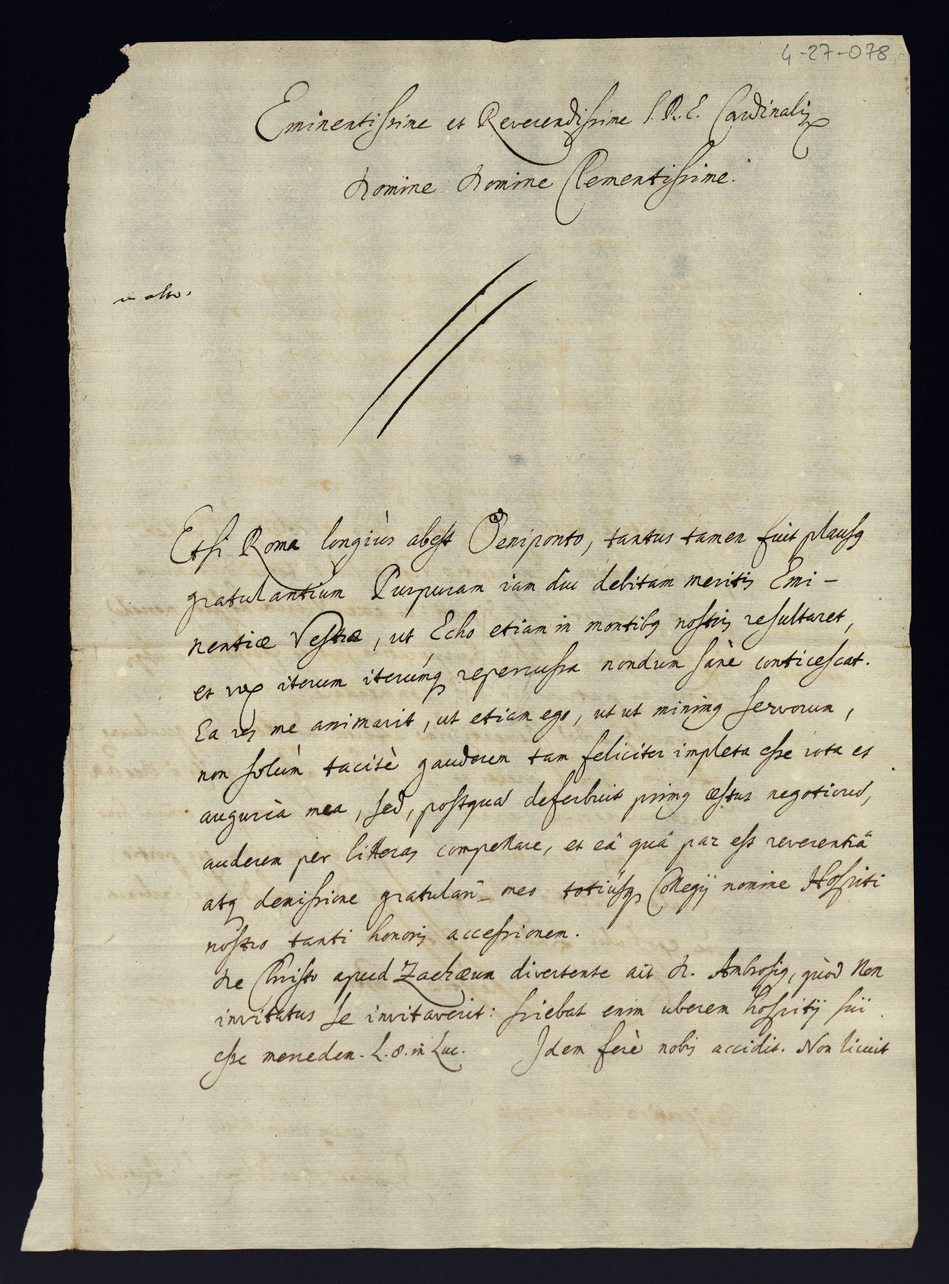 4-27-078
Eminentissime et Reverendissime S. R. E. Cardinalis
Domine Domine Clementissime.
Etsi Roma longiùs abest Oeniponto, tantus tamen fuit plausq
gratulantium Purpuram iam diu debitam meritis Emi-
nentiæ Vestræ, ut Echo etiam in montibq nostris resultaret,
et vox iterum iterúmq repercussa nondum sanè conticescat.
Ea res me animavit, ut etiam ego, ut ut minimq servorum,
non solùm tacitè gauderem tam feliciter impleta esse vota et
auguria mea, sed, postquā deferbuit primq æstus negotiorū,
auderem per litteras compellare, et eâ quâ par est reverentiâ
atq demissione gratulari meo totiusq Collegij nomine Hospiti
nostro tanti honoris accessionem.
De Christo apud Zachæum divertente ait D. Ambrosiq, quòd Non
invitatus se invitaverit: sciebat enim uberem hospitij sui
esse mercedem. L. 8. in Luc. Idem ferè nobis accidit. Non licuit